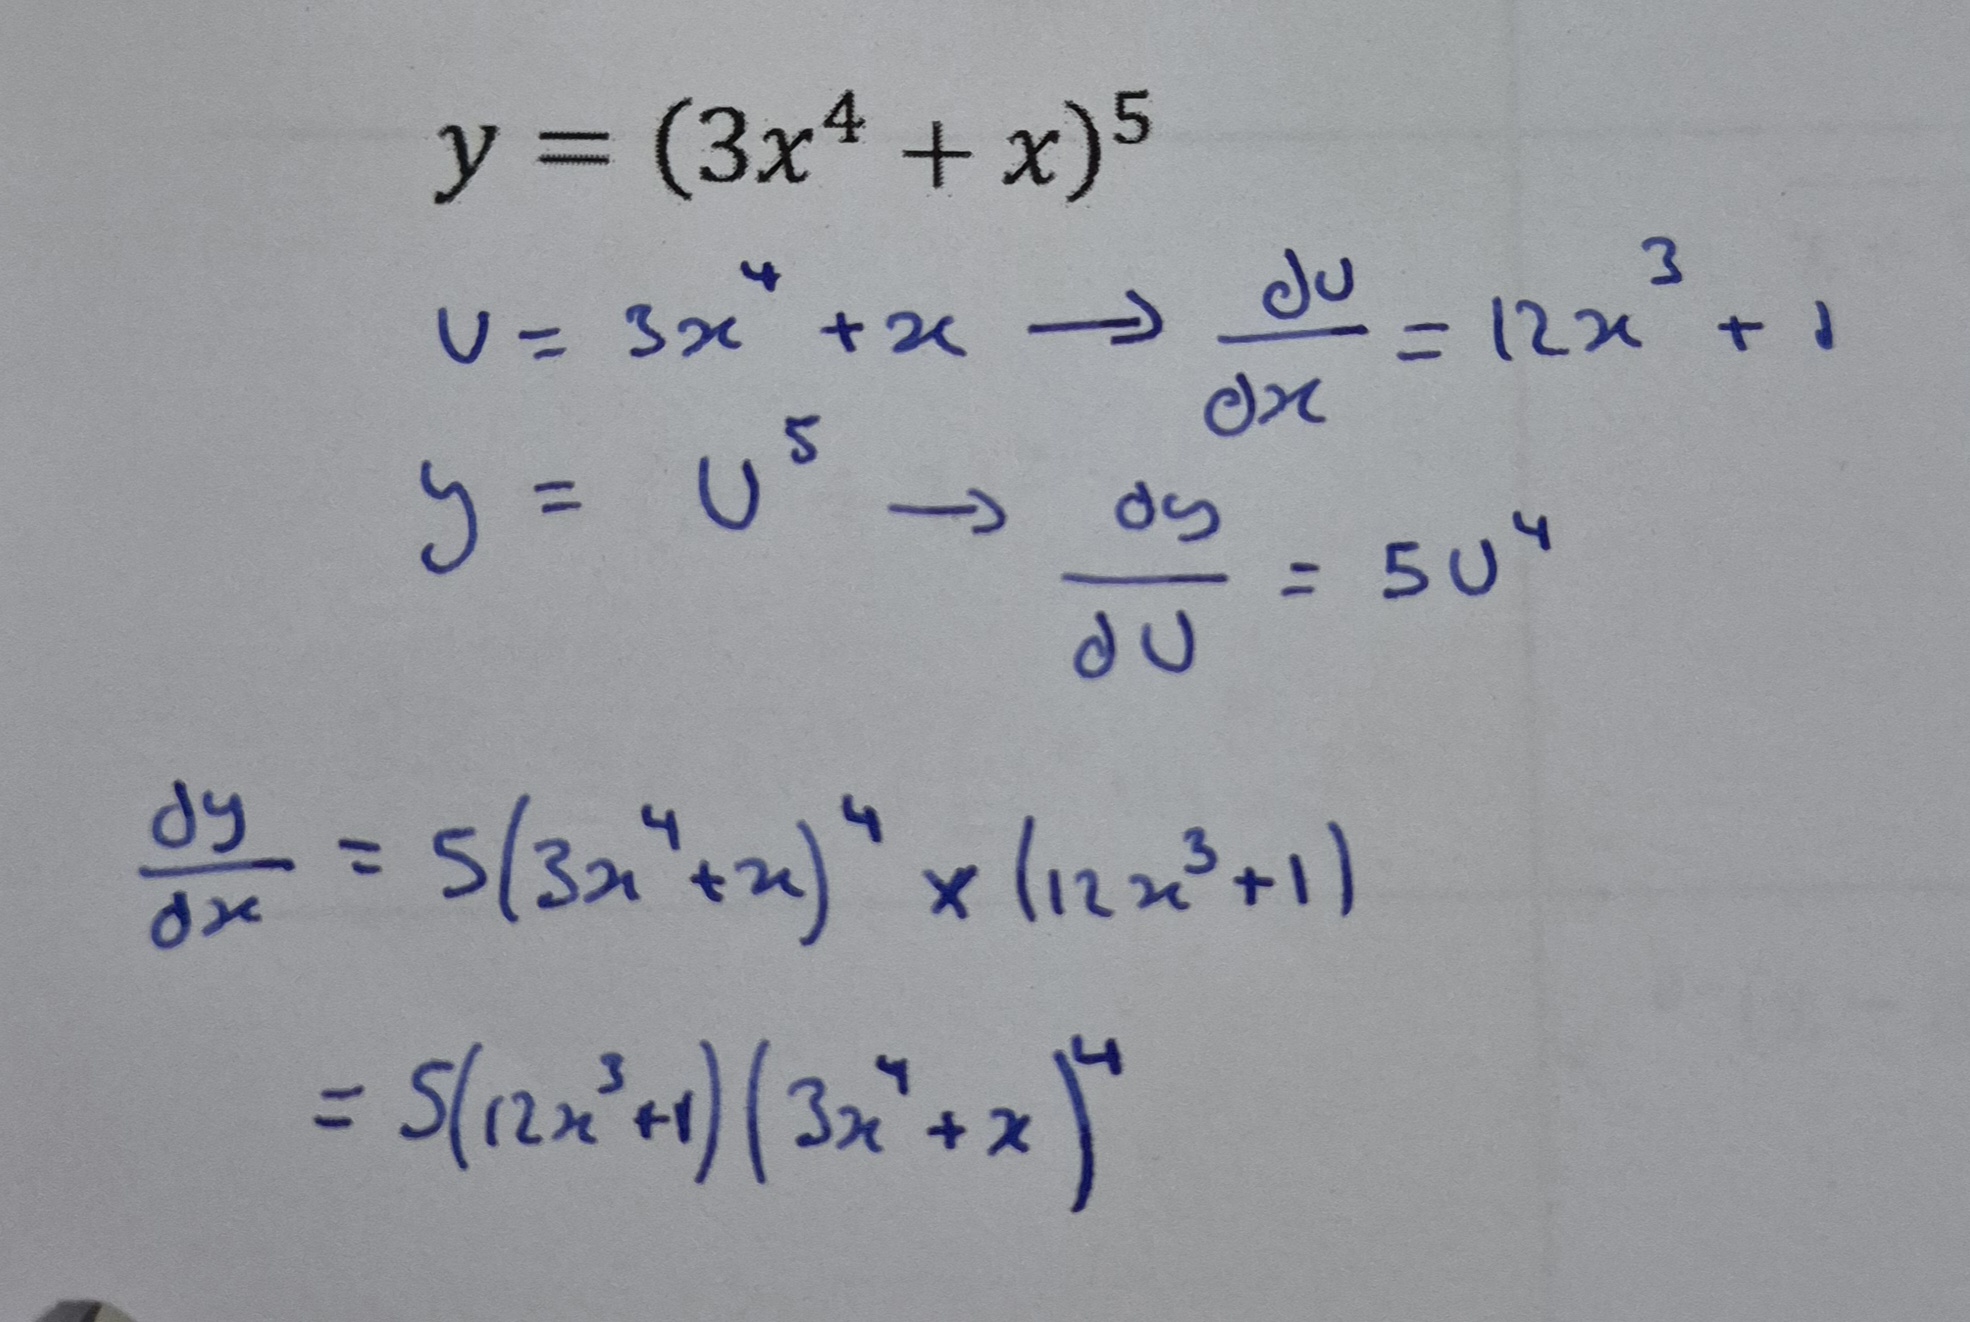 y = (3x⁴ + x)⁵
U = 3x⁴ + x → dU/dx = 12x³ + 1
y = U⁵ → dy/dU = 5U⁴
dy/dx = 5(3x⁴+x)⁴ × (12x³+1)
= 5(12x³+1)(3x⁴+x)⁴